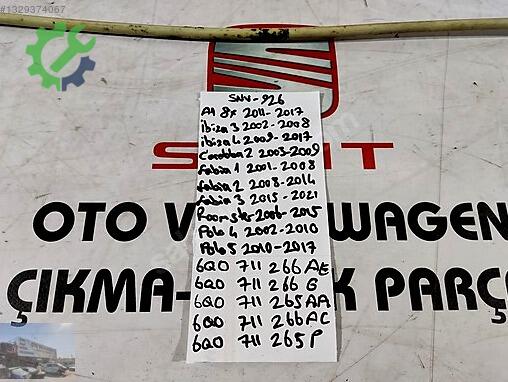 #1329374067
SNV-926
A1 8x 2011-2017
ibiza 3 2002-2008
ibiza 4 2009-2017
Cordoba 2 2003-2009
fabia 1 2001-2008
fabia 2 2008-2014
fabia 3 2015-2021
Roomster 2006-2015
Polo 4 2002-2010
Polo 5 2010-2017
6Q0 711 266 AE
6Q0 711 266 G
6Q0 711 265 AA
6Q0 711 266 AC
6Q0 711 265 P
OTO V WAGEN
ÇIKMA- K PARÇA